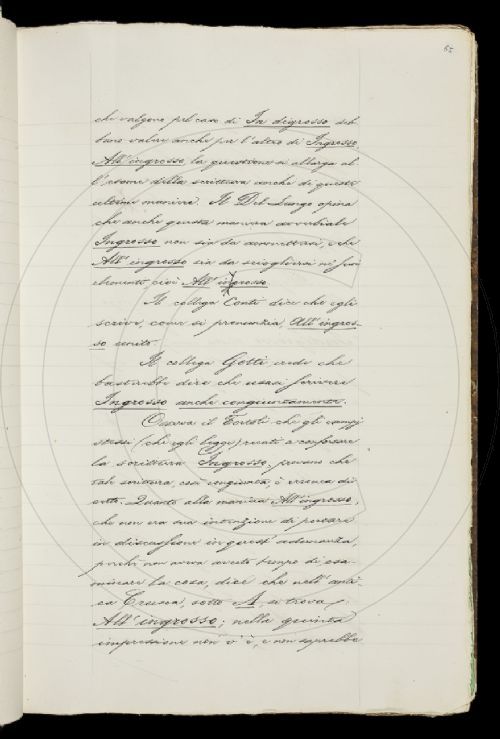 65
che valgono pel caso di In digrosso deb-
bano valere anche per l'altro di Ingrosso
All'ingrosso, la questione si allarga al
l'esame della scrittura anche di queste
ultime maniere. Il Del-Lungo opina
che anche questa maniera avverbiale
Ingrosso non sia da ammettersi, e che
All'ingrosso sia da sciogliersi ne' suoi
elementi, cioè All'ingrosso.
Il collega Conti dice che egli
scrive, come si pronunzia, All'ingros-
so unito.
Il collega Gotti crede che
basterebbe dire che usasi scrivere
Ingrosso anche congiuntamente.
Osserva il Tortoli che gli esempj
stessi (che egli legge) recati a confortare
la scrittura Ingrosso, provano che
tale scrittura, così congiunta, è erronea di
certo. Quanto alla maniera All'ingrosso,
che non era sua intenzione di portare
in discussione in quest'adunanza,
perchè non aveva avuto tempo di esa-
minare la cosa, dice che nell'anti-
ca Crusca, sotto A, si trova
All'ingrosso; nella quinta
impressione non v'è, e non saprebbe